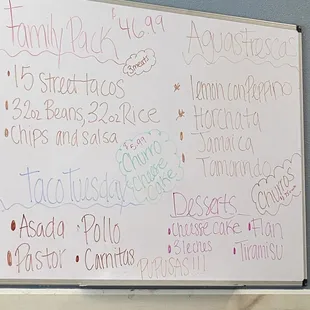 Family Pack $46.99
3 meats
• 15 street tacos
• 32oz Beans, 32oz Rice
• Chips and salsa
Aguas Frescas
lemon con Pepino
• Horchata
• Jamaica
• Tamarindo
$5.99
Churro
Cheese
cake
Taco Tuesday
• Asada • Pollo
• Pastor • Carnitas
PUPUSAS!!!
Desserts
• cheesse cake • Flan
• 3 leches • Tiramisu
Churros